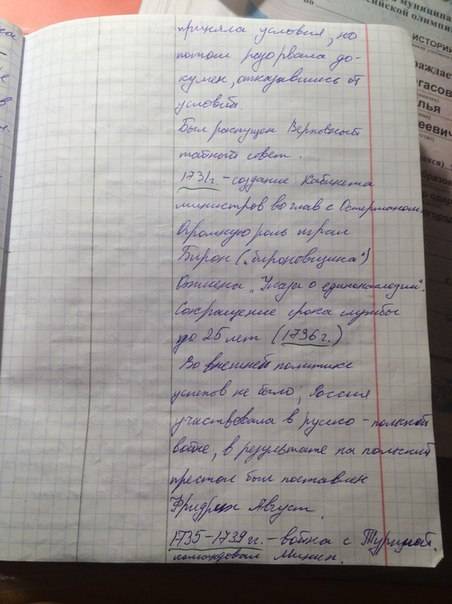 приняла условия, но
потом разорвала до-
кумен, отказавшись от
условий.
Был распущен Верховный
тайный совет.
1731г. - создание Кабинета
министров во глав с Остерманом.
Огромную роль играл
Бирон („бироновщина")
Отмена „Указа о единонаследии".
Сокращение срока службы
до 25 лет (1796 г.)
Во внешней политике
успехов не было; Россия
участвовала в русско - польской
войне, в результате на польский
престол был поставлен
Фридрих Август.
1735-1739 гг. - война с Турцией.
командовал Миних.
муницип
сийской олимпи
ИСТОРИ
раждае
гасов
лья
еевич